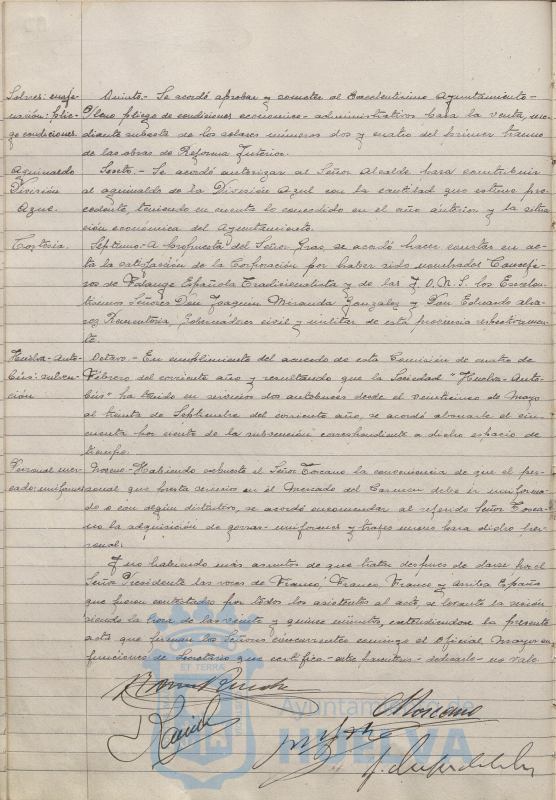 Solares: enaje-
nación: plie-
go condiciones
Quinto.- Se acordó aprobar y someter al Excelentísimo Ayuntamiento-
Pleno pliego de condiciones económico-administrativas para la venta, me-
diante subasta de los solares números dos y cuatro del primer tramo
de las obras de Reforma Interior.
Aguinaldo
División
Azul.
Sexto.- Se acordó autorizar al Señor Alcalde para contribuir
al aguinaldo de la División Azul con la cantidad que estime pro-
cedente, teniendo en cuenta lo concedido en el año anterior y la situa-
ción económica del Ayuntamiento.
Cortesía.
Septimo.- A propuesta del Señor Gras, se acordó hacer constar en ac-
ta la satisfacción de la Corporación por haber sido nombrados Conseje-
ros de Falange Española Tradicionalista y de las J.O.N.S. los Excelen-
tísimos Señores Don Joaquin Miranda Gonzalez y Don Eduardo Alva-
rez Rementeria, Gobernadores civil y militar de esta provincia respectivamen-
te.
Huelva-Auto-
Bús: subven-
ción
Octavo.- En cumplimiento del acuerdo de esta Comisión de cuatro de
Febrero del corriente año y resultando que la Sociedad "Huelva-Auto-
Bús" ha tenido en servicio dos autobuses desde el veinticinco de Mayo
al treinta de Septiembre del corriente año, se acordó abonarle el cin-
cuenta por ciento de la subvención correspondiente a dicho espacio de
tiempo.
Personal mer-
cado: uniformes
Noveno.- Habiendo expuesto el Señor Toscano la conveniencia de que el per-
sonal que presta servicio en el Mercado del Carmen debe ir uniforma-
do o con algún distintivo, se acordó encomendar al referido Señor Tosca-
no la adquisición de gorras-uniformes y trajes mono para dicho per-
sonal.
Y no habiendo más asuntos de que tratar después de darse por el
Señor Presidente las voces de Franco, Franco, Franco y Arriba España
que fueron contestadas por todos los asistentes al acto, se levantó la sesión
siendo la hora de las veinte y quince minutos, extendiéndose la presente
acta que firman los Señores concurrentes conmigo el Oficial Mayor en
funciones de Secretario que certifico.- no vale
ET TERRA
Ayuntamiento de
HUELVA
Toscano